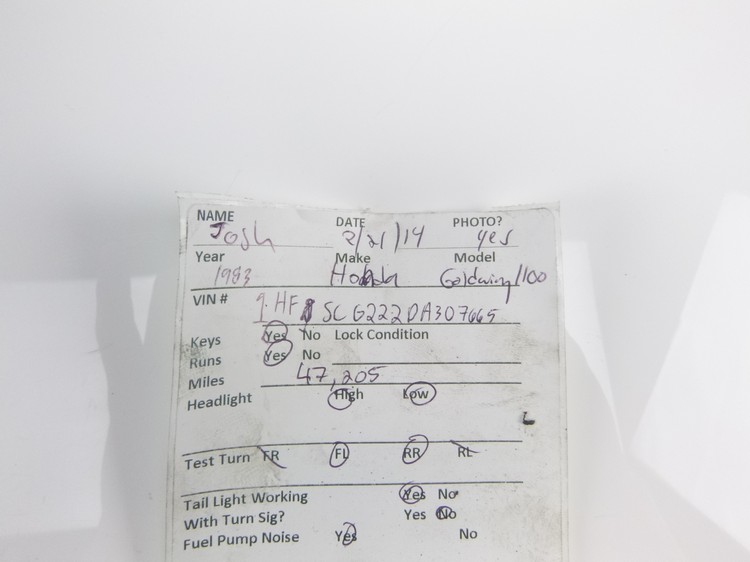 NAME DATE PHOTO?
Josh 2/21/14 yes
Year Make Model
1983 Honda Goldwing 1100
VIN # 1HF SCG222DA307665
Keys Yes No Lock Condition
Runs Yes No
Miles 47,205
Headlight High Low
L
Test Turn FR FL RR RL
Tail Light Working Yes No
With Turn Sig? Yes No
Fuel Pump Noise Yes No